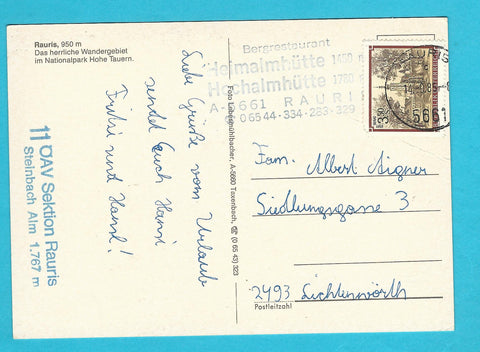 Rauris, 950 m
Das herrliche Wandergebiet
im Nationalpark Hohe Tauern.
Liebe Grüße vom Urlaub
sendet Euch Hansi
und
11 ÖAV Sektion Rauris
Steinbach Alm 1.767 m
Foto Lebesmühlbacher, A-5660 Taxenbach, (0 65 43) 323
Bergrestaurant
Heimalmhütte 1450 m
Hochalmhütte 1780 m
A-5661 RAURIS
06544-334-283-329
5661
Fam. Albert Aigner
Siedlungsgasse 3
2493 Lichtenwörth
Postleitzahl